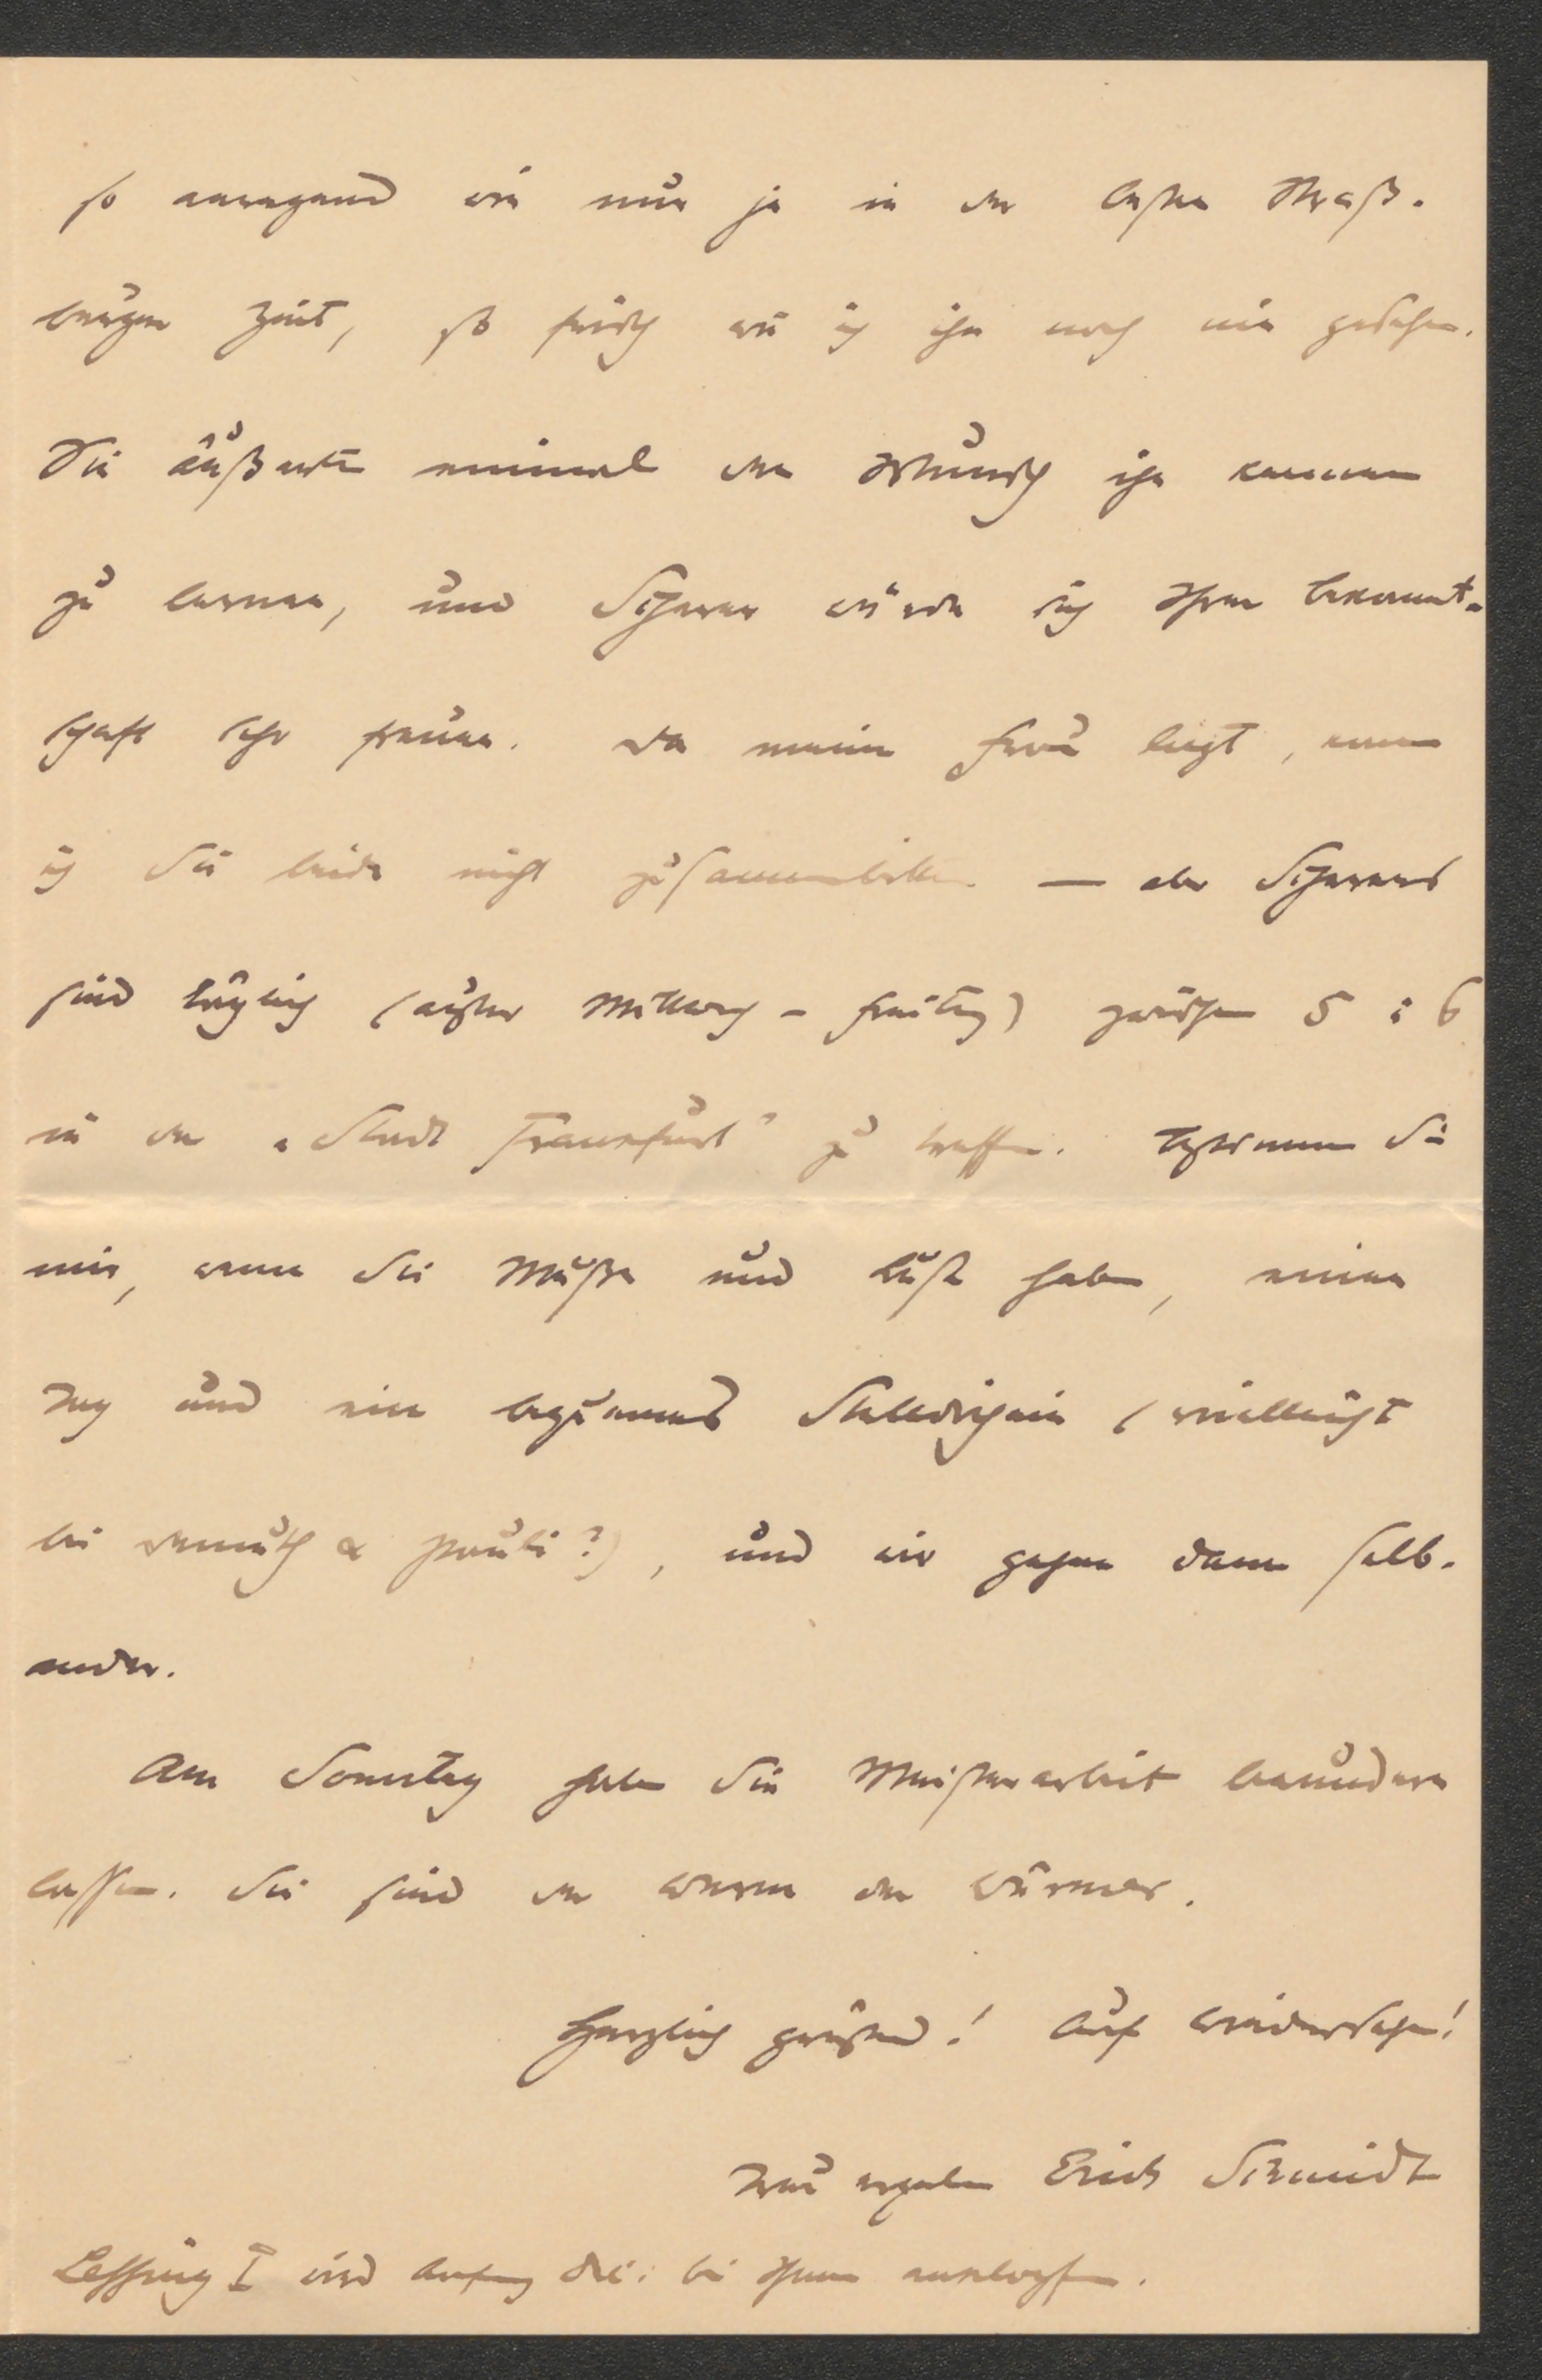 so anregend wie nur je in der besten Straß-
burger Zeit, so frisch wie ich ihn noch nie gesehen.
Sie äußerten einmal den Wunsch ihn kennen
zu lernen, und Scherer würde sich Ihrer Bekannt-
schaft sehr freuen. Da meine Frau liegt, kann
ich Sie beide nicht zusammenbitten — aber Scherers
sind täglich (außer Mittwoch - Freitag) zwischen 5 : 6
in der „Stadt Frankfurt" zu treffen. Bestimmen Sie
mir, wenn Sie Muße und Lust haben, einen
Tag und ein bequemes Stelldichein (vielleicht
bei Demuth & Pauli?), und wir gehen dann selb-
ander.
Am Sonntag haben Sie Meisterarbeit bewundern
lassen. Sie sind der Wurm der Würmer.
Herzlich grüßend! Auf Wiedersehen!
Treu ergeben Erich Schmidt
Lessing I wird Anfang Dec. bei Ihnen anklopfen.